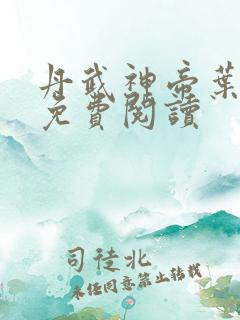 丹武神帝葉
免費閱讀
司徒北
未经同意禁止转载